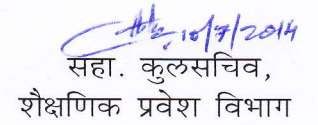 10/7/2014
सहा. कुलसचिव,
शैक्षणिक प्रवेश विभाग